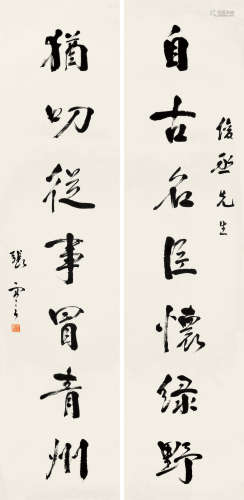 俊丞先生
自古名臣懷緑野
猶叨從事冒青州
張